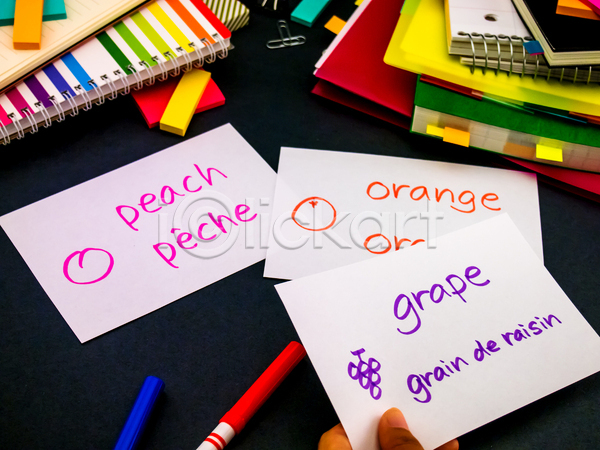 peach
pêche
orange
grape
grain de raisin
iClickart